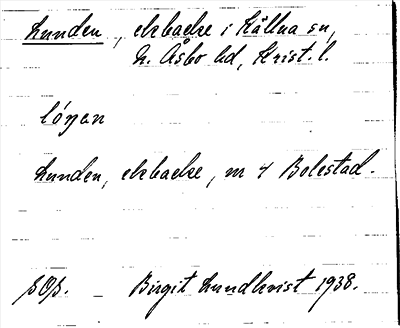 Lunden, ekbacke i Källna sn,
N. Åsbo hd, Krist. l.
lóŋan
Lunden, ekbacke, m 4 Bolestad.
SOS. – Birgit Lundkvist 1938.